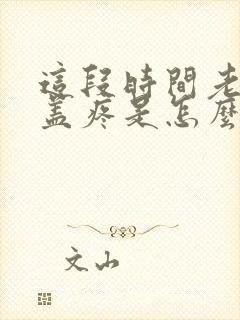 這段時間老
蓋疼是怎麼
文山